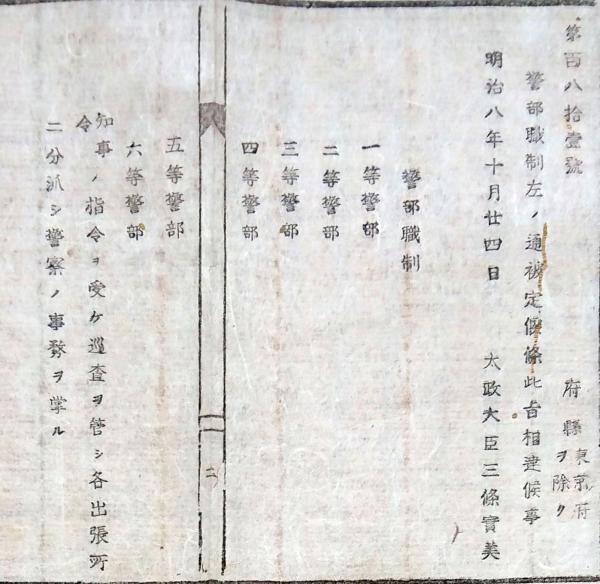 第百八拾壹號
府縣 東京府ヲ除ク
警部職制左ノ通被定候條此旨相達候事
明治八年十月廿四日 太政大臣三條實美
警部職制
一等警部
二等警部
三等警部
四等警部
二
五等警部
六等警部
知事令ノ指令ヲ受ケ巡査ヲ管シ各出張所
ニ分派シ警察ノ事務ヲ掌ル